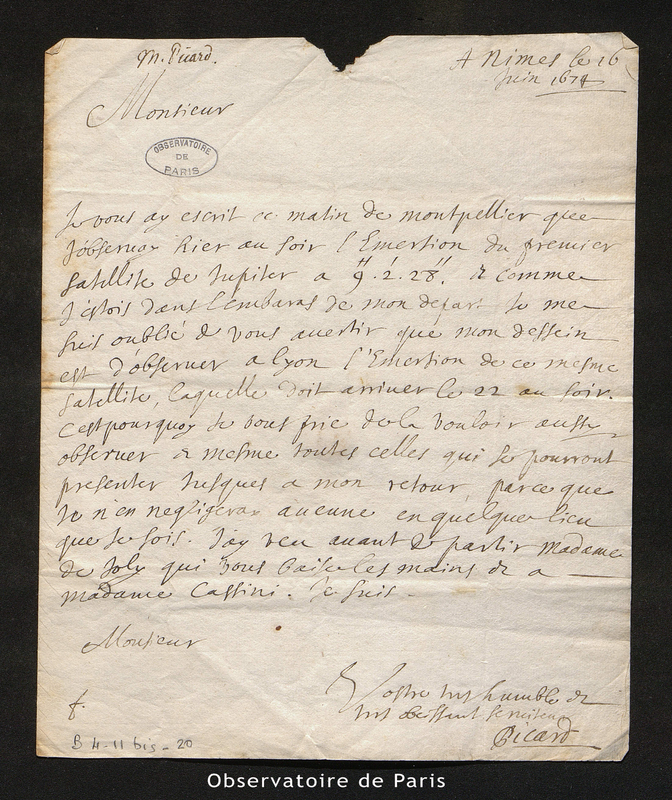 M. Picard.
A Nimes le 16
Juin 1674
Monsieur
OBSERVATOIRE
DE
PARIS
Je vous ay escrit ce matin de montpellier que
J'observay hier au soir l'Emertion du premier
satellite de Jupiter a 9.2.28. & comme
J'estois dans l'embaras de mon depart Je me
suis oublié de vous avertir que mon dessein
est d'observer a lyon l'Emertion de ce mesme
satellite, laquelle doit arriver le 22 au soir.
C'est pourquoy Je vous prie de la vouloir aussy
observer & mesme toutes celles qui se pourront
presenter Jusques a mon retour, parce que
Je n'en negligeray aucune en quelque lieu
que Je sois. J'ay veu avant de partir Madame
de Joly qui vous baise les mains & a
madame Cassini. Je suis.
Monsieur
Vostre tres humble &
tres obeissant serviteur
Picard
f.
B 4-11 bis - 20
Observatoire de Paris